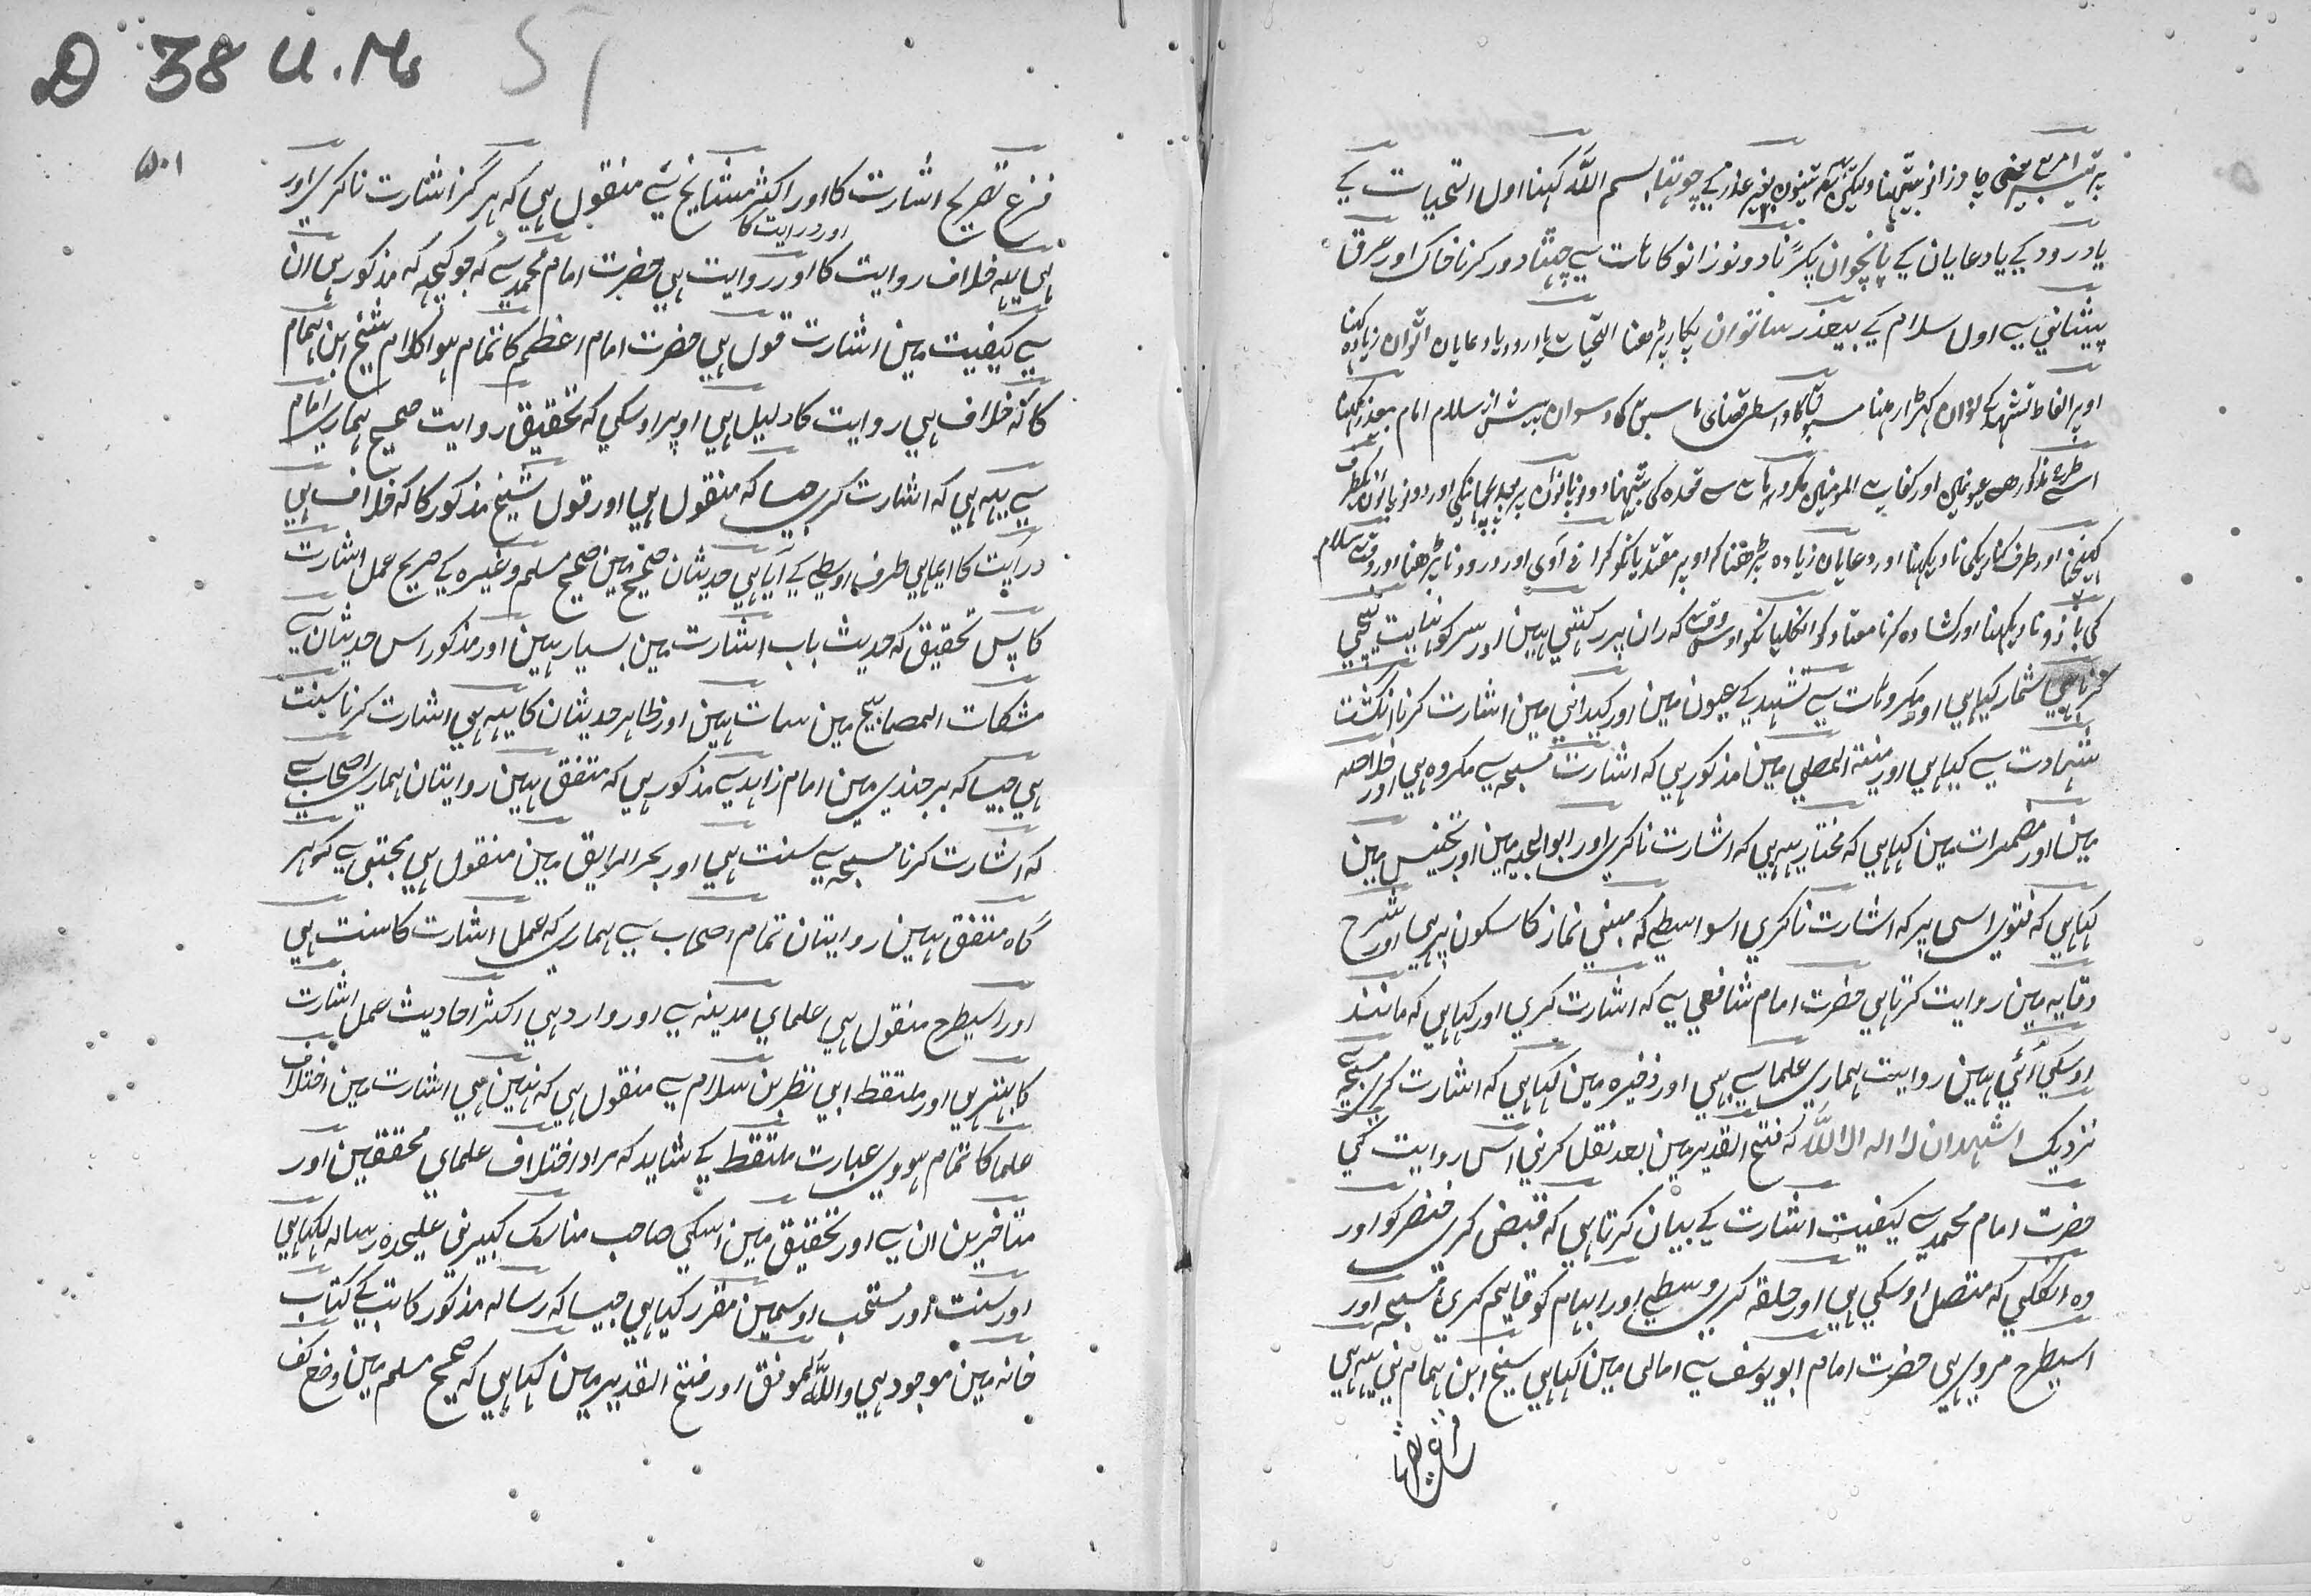 بغیر عذر کے چوتہا بسم اللہ کہنا اول التحیات کے
یا درود کے یا دعایان کے پانچوان پکڑنا دونو زانو کا ہات سے چھٹا دور کرنا خاک اور عرق کا
پیشانی سے اول سلام کے بیعذر ساتوان پکار پڑھنا التحیات یا درود یا دعایان آٹوان زیادہ کہنا
اوپر الفاظ تشہد کے نوان کہڑا رہنا مسبوق کا واسطی قضای ماسبق کا دسوان پیش از سلام امام بیعذر
اور کفایت المومنین مکروہات سے قعدہ کی بیٹہنا دونو پانوان پر
اور طرف کناریکی نا دیکہنا اور دعایان زیادہ پڑھنا کہ اوپر مقتدیانکو کرانے آوی اور درود نا پڑھنا اور وقت سلام
کی بازو نا دیکہنا اور کشادہ کرنا معتاد کو انگلیانکو اوسوقت کہ ران پر رکہتی ہین اور سر کو نہایت نیچی
کرنا بہی شمار کیا ہی اور مکروہات سے تشہد کے عیون مین اور کیدانی مین اشارت کرنا انگشت
شہادت سے کیا ہی اور منیۃ المصلی مین مذکور ہی کہ اشارت مسبحہ سے مکروہ ہی اور خلاصہ
مین اور مضمرات مین کہا ہی کہ مختار یہہ ہی کہ اشارت ناکری اور ابوالجیہ مین اور تجنیس مین
کہا ہی کہ فتوی اسی پر کہ اشارت ناکری اسواسطے کہ مبنی نماز کا سکون پر ہی اور شرح
وقایہ مین روایت کرتا ہی حضرت امام شافعی سے کہ اشارت کری اور کہا ہی کہ مانند
اوسکی آئی ہین روایت ہماری علما سے بہی اور ذخیرہ مین کہا ہی کہ اشارت کری مسبحہ سے
نزدیک اشہد ان لا الہ الا اللہ کہ فتح القدیر مین بعد نقل کرنی اس روایت کی
حضرت امام محمد سے کیفیت اشارت کے بیان کرتا ہی کہ قبض کری خنصر کو اور
وہ انگلی کہ متصل اوسکی ہی اور حلقہ کری وسطی اور ابہام کو قایم کری مسبحہ اور
اسیطرح مروی ہی حضرت امام ابو یوسف سے امالی مین کہا ہی شیخ ابن ہمام نی یہہ ہی
D 38 U. Ms
۵۰۱
فرع تصریح اشارت کا اور اکثر مشایخ سے منقول ہی کہ ہرگز اشارت ناکری اور
اور درایت کا
ہی یہہ خلاف روایت کا اور روایت ہی حضرت امام محمد سے کہ جو کچہہ کہ مذکور ہی ان
سے کیفیت مین اشارت قول ہی حضرت امام اعظم کا تمام ہوا کلام شیخ ابن ہمام
کا نہ خلاف ہی روایت کا دلیل ہی اوپر اوسکی کہ تحقیق روایت صحیح ہماری امام
سے یہہ ہی کہ اشارت کری جیسا کہ منقول ہی اور قول شیخ مذکور کا کہ خلاف ہی
درایت کا ایما ہی طرف اوسطی کے آیا ہی حدیثان صحیح مین صحیح مسلم وغیرہ کے صریح عمل اشارت
کا پس تحقیق کہ حدیث باب اشارت مین بسیار ہین اور مذکور اس حدیثان سے
مشکات المصابیح مین سات ہین اور ظاہر حدیثان کا یہہ ہی اشارت کرنا سنت
ہی جیسا کہ برجندی مین امام زاہد سے مذکور ہی کہ متفق ہین روایتان ہماری اصحاب سے
کہ اشارت کرنا مسبحہ سے سنت ہی اور بحر الرایق مین منقول ہی مجتبی سے کہ ہر
گاہ متفق ہین روایتان تمام اصحاب سے ہماری کہ عمل اشارت کا سنت ہی
اور اسیطرح منقول ہی علمای مدینہ سے اور وارد ہی اکثر احادیث عمل اشارت
کا بہتر ہی اور ملتقط ابی نظر بن سلام سے منقول ہی کہ نہین ہی اشارت مین اختلاف
علما کا تمام ہووی عبارت ملتقط کے شاید کہ مراد اختلاف علمای محققین اور
متاخرین ان سے اور تحقیق مین اسکی صاحب مناسک کبیر نی علیحدہ رسالہ لکہا ہی
اور سنت اور مستحب اوسمین مقرر کیا ہی جیسا کہ رسالہ مذکور کاتب کے کتاب
خانہ مین موجود ہی واللہ الموفق اور فتح القدیر مین کہا ہی کہ صحیح مسلم مین وضع کف